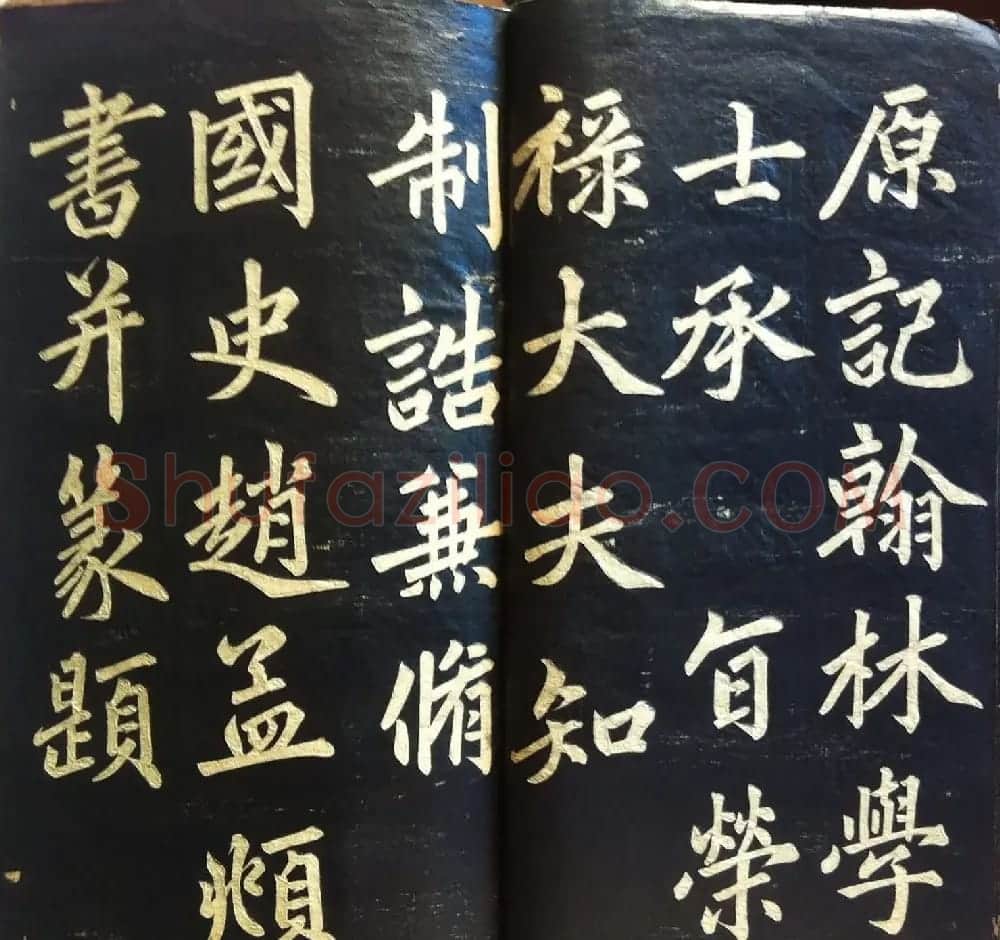 原記翰林學
士承 旨榮
祿大夫知
制誥兼脩
國史趙孟頫
書并篆題
Shufaziliao.COM